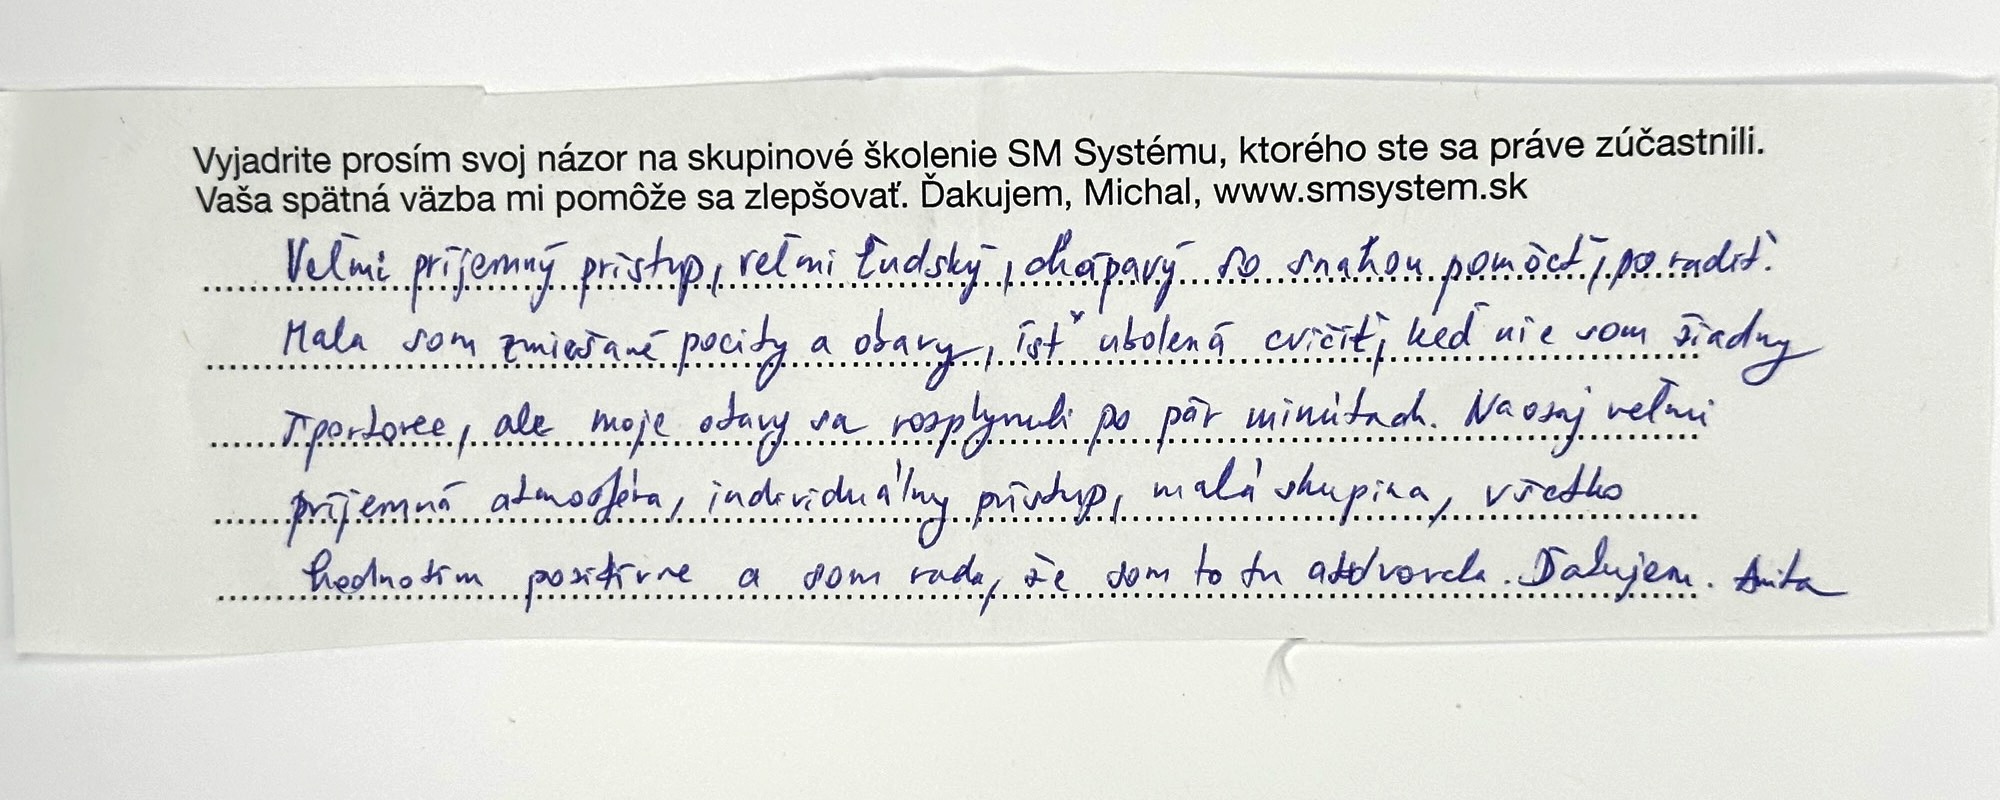 Vyjadrite prosím svoj názor na skupinové školenie SM Systému, ktorého ste sa práve zúčastnili.
Vaša spätná väzba mi pomôže sa zlepšovať. Ďakujem, Michal, www.smsystem.sk
Veľmi príjemný prístup, veľmi ľudský, chápavý so snahou pomôcť, poradiť.
Mala som zmiešané pocity a obavy, ísť ubolená cvičiť, keď nie som žiadny
športovec, ale moje obavy sa rozplynuli po pár minútach. Naozaj veľmi
príjemná atmosféra, individuálny prístup, malá skupina, všetko
hodnotím pozitívne a som rada, že som to tu absolvovala. Ďakujem. Anita